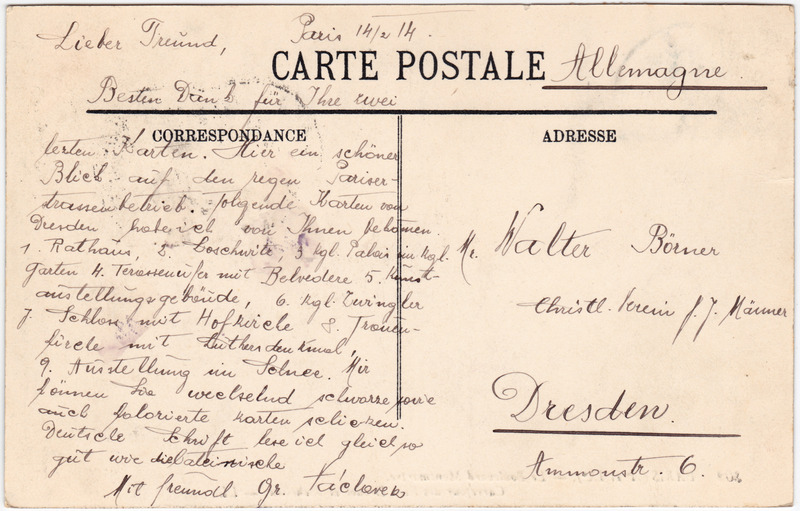 Lieber Freund, Paris 14/2 14.
CARTE POSTALE
Allemagne.
Besten Dank für Ihre zwei
CORRESPONDANCE
ADRESSE
letzten Karten. Hier ein schöner
Blick auf den regen Pariser-
strassenbetrieb. Folgende Karten von
Dresden habe ich von Ihnen bekommen.
1. Rathaus, 2. Loschwitz, 3 kgl. Palais im kgl.
Garten 4. Terassenufer mit Belvedere 5. Kunst-
austellungsgebäude, 6. kgl. Zwingler
7. Schloss mit Hofkirche 8. Frauen-
kirche mit Luthersdenkmal,
9. Ausstellung im Schnee. Mir
können Sie wechselnd schwarze sowie
auch kolorierte Karten schicken.
Deutsche Schrift lese ich gleich so
gut wie die lateinische
Mit freundl. Gr.
Mr. Walter Börner
Christl. Verein f. J. Männer
Dresden.
Ammonstr. 6.